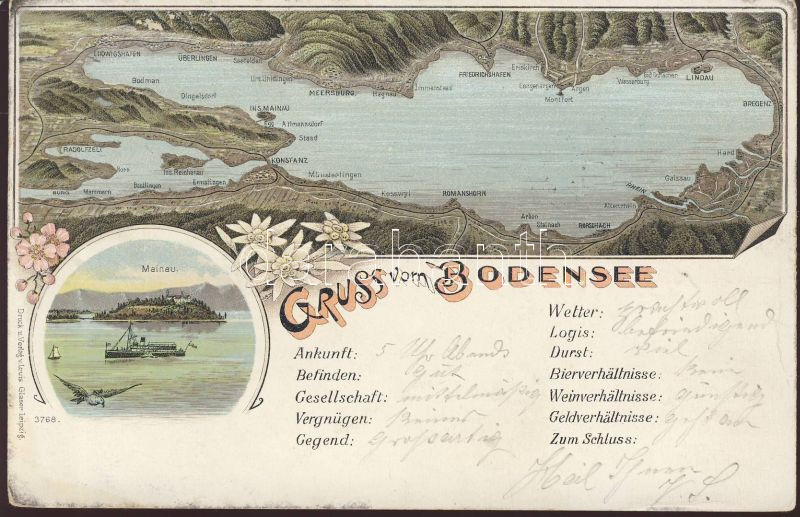 LUDWIGSHAFEN
ÜBERLINGEN
Seefelden
Bodman
Unt. Uhldingen
Dingelsdorf
MEERSBURG
Hagnau
Immenstaad
FRIEDRICHSHAFEN
Eriskirch
Langenargen
Argen
Montfort
Wasserburg
Bad Schachen
LINDAU
BREGENZ
INS. MAINAU
Allmannsdorf
Staad
RADOLFZELL
Horn
Ins. Reichenau
KONSTANZ
Münsterlingen
BURG
Mammern
Berlingen
Ermatingen
Kesswyl
ROMANSHORN
Arbon
Steinach
RORSCHACH
Altenrhein
RHEIN
Gaissau
Hard
Mainau.
GRUSS vom BODENSEE
Ankunft: 5 Uhr Abends
Befinden: Gut
Gesellschaft: mittelmäßig
Vergnügen: Keines
Gegend: Großartig
Wetter: prachtvoll
Logis: befriedigend
Durst: viel
Bierverhältnisse: Kein
Weinverhältnisse: Günstig
Geldverhältnisse:
Zum Schluss:
Heil Ihnen
3768.
Druck u. Verlag v. Louis Glaser Leipzig.